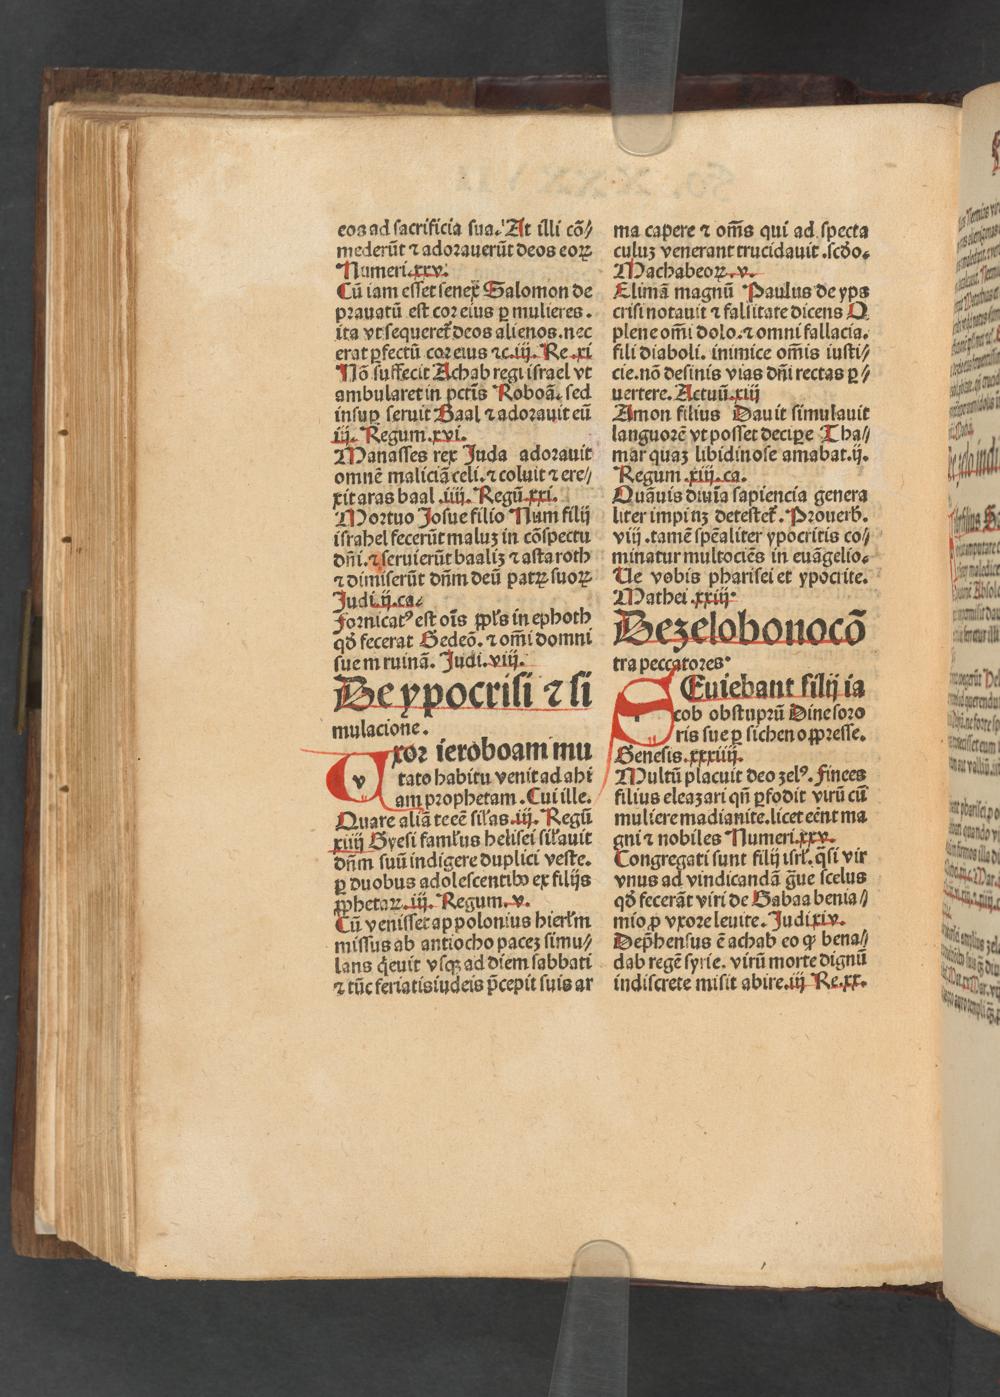 eos ad sacrificia sua. At illi cō⸗
mederūt ⁊ adorauerūt deos eoꝝ
Numeri.xxv.
Cū iam esset senex Salomon de
prauatū est cor eius ꝑ mulieres.
ita vt sequeret̃ deos alienos. nec
erat ꝑfectū cor eius ⁊c. iij. Re.xi
Nō suffecit Achab regi israel vt
ambularet in pctīs Roboā. sed
insuꝑ seruit Baal ⁊ adorauit eū
iij. Regum.xvi.
Manasses rex Juda adorauit
omnē maliciā celi. ⁊ coluit ⁊ ere⸗
xit aras baal .iiij. Regū.xxi.
Mortuo Josue filio Num filij
israhel fecerūt maluʒ in cōspectu
dn̄i. ⁊ seruierūt baaliʒ ⁊ astaroth
⁊ dimiserūt dn̄m deū patrꝝ suoꝝ
Judi.ij.ca.
fornicatꝰ est oīs ꝓpl̄s in ephoth
qd̄ fecerat Gedeō. ⁊ om̄i domni
sue m ruinā. Judi.viij.
De ypocrisi ⁊ si
mulacione.
Uxor ieroboam mu
tato habitu venit ad ahi
am prophetam . Cui ille.
Quare aliā te eē sil̄as .iij. Regū
xiiij Gyesi faml̄us helisei sil̄auit
dn̄m suū indigere duplici veste.
ꝑ duobus adolescentibꝰ ex filijs
ꝓphetaꝝ. iij. Regum. v.
Cū venisset appolonius hierl̄m
missus ab antiocho paceʒ simu⸗
lans q̇euit vsqʒ ad diem sabbati
⁊ tūc feriatis iudeis p̄cepit suis ar
ma capere ⁊ om̄s qui ad specta
culuʒ venerant trucidauit .scd̄o.
Machabeoꝝ. v.
Elimā magnū Paulus de yps
crisi notauit ⁊ falsitate dicens O
plene om̄i dolo. ⁊ omni fallacia.
fili diaboli. inimice om̄is iusti⸗
cie. nō desinis vias dn̄i rectas ꝑ⸗
uertere. Actuū.xiij
Amon filius Dauit simulauit
languorē vt posset decipe Tha⸗
mar quaʒ libidinose amabat.ij.
Regum .xiij. ca.
Quāuis diuīa sapiencia genera
liter impinʒ detestet̃. Prouerb.
viij. tamē spēaliter ypocritis co⸗
minatur multociēs in euāgelio.
Ue vobis pharisei et ypocrite.
Mathei .xxiij.
De zelo bono cō
tra peccatores.
SEuiebant filij ia
cob ob stuprū Dine soro
ris sue ꝑ sichen oꝓpresse.
Genesis .xxxiiij.
Multū placuit deo zelꝰ. finees
filius eleazari qn̄ ꝑfodit virū cū
muliere madianite. licet eēnt ma
gni ⁊ nobiles Numeri.xxv.
Congregati sunt filij isrl̄. q̄si vir
vnus ad vindicandā g̃ue scelus
qd̄ fecerāt viri de Gabaa benia⸗
mio ꝓ vxore leuite. Judi xiv.
Dep̄hensus ē achab eo qꝫ bena⸗
dab regē syrie. virū morte dignū
indiscrete misit abire. iij Re.xx.